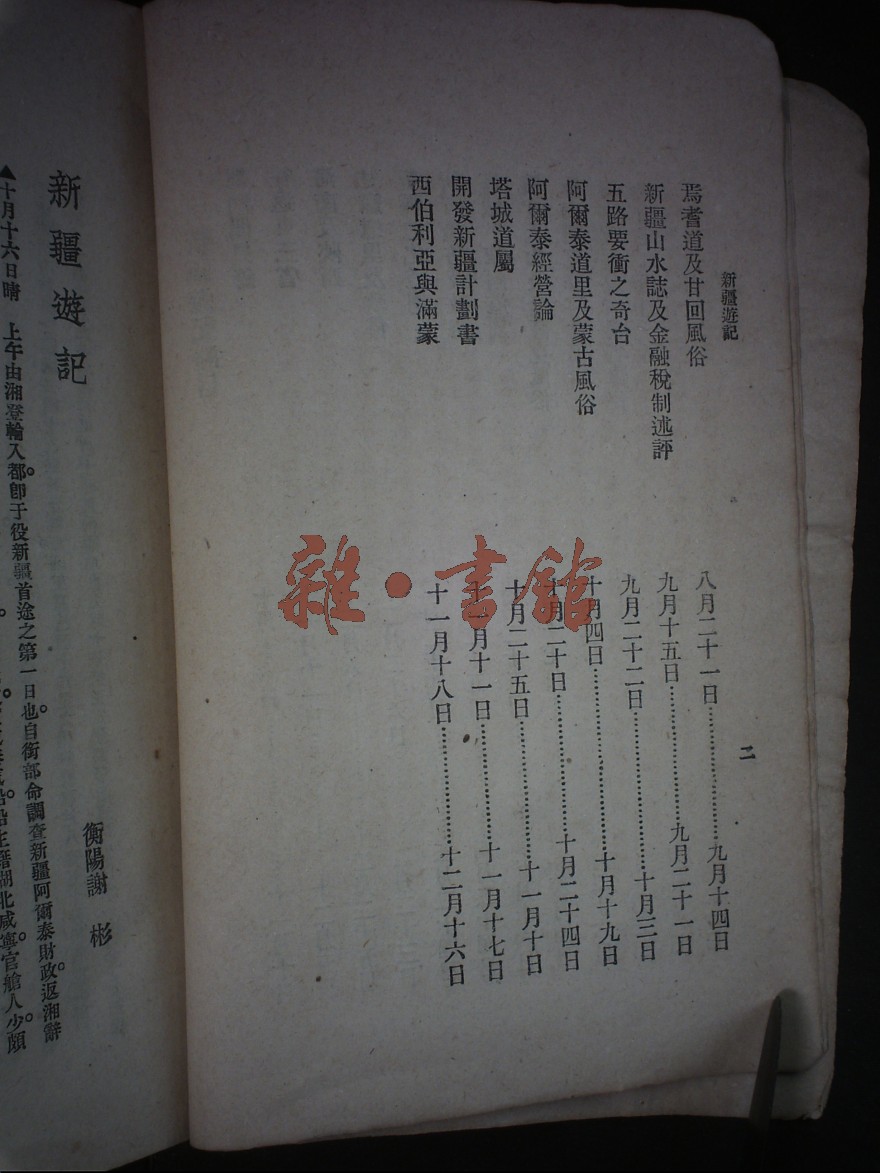 新疆遊記
二
焉耆道及甘回風俗 八月二十一日……………………九月十四日
新疆山水誌及金融稅制述評 九月十五日……………………九月二十一日
五路要衝之奇台 九月二十二日……………………十月三日
阿爾泰道里及蒙古風俗 十月四日……………………十月十九日
阿爾泰經營論 十月二十日……………………十月二十四日
塔城道屬 十月二十五日……………………十一月十日
開發新疆計劃書 十一月十一日……………………十一月十七日
西伯利亞與滿蒙 十一月十八日……………………十二月十六日
雜·書館
衡陽謝 彬
新疆遊記
▲十月十六日晴 上午由湘登輪入都。卽于役新疆首途之第一日也。自銜部命調查新疆阿爾泰財政。返湘辭
船主籍湖北咸寧。官艙人少。頗